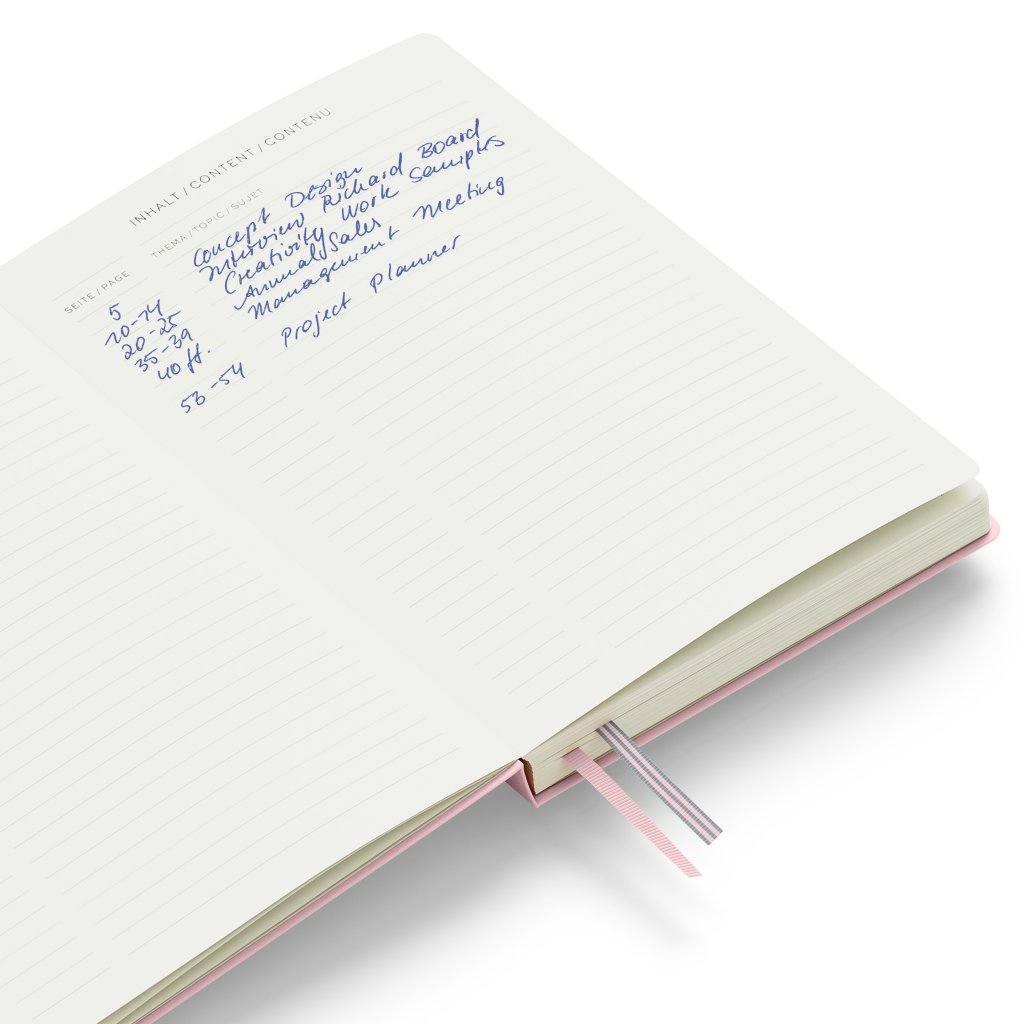 INHALT / CONTENT / CONTENU
SEITE / PAGE THEMA / TOPIC / SUJET
5 Concept Design
10-14 Interview Richard Board
20-25 Creativity Work Samples
35-39 Annual Sales Meeting
40 ff. Management
53-54 Project Planner